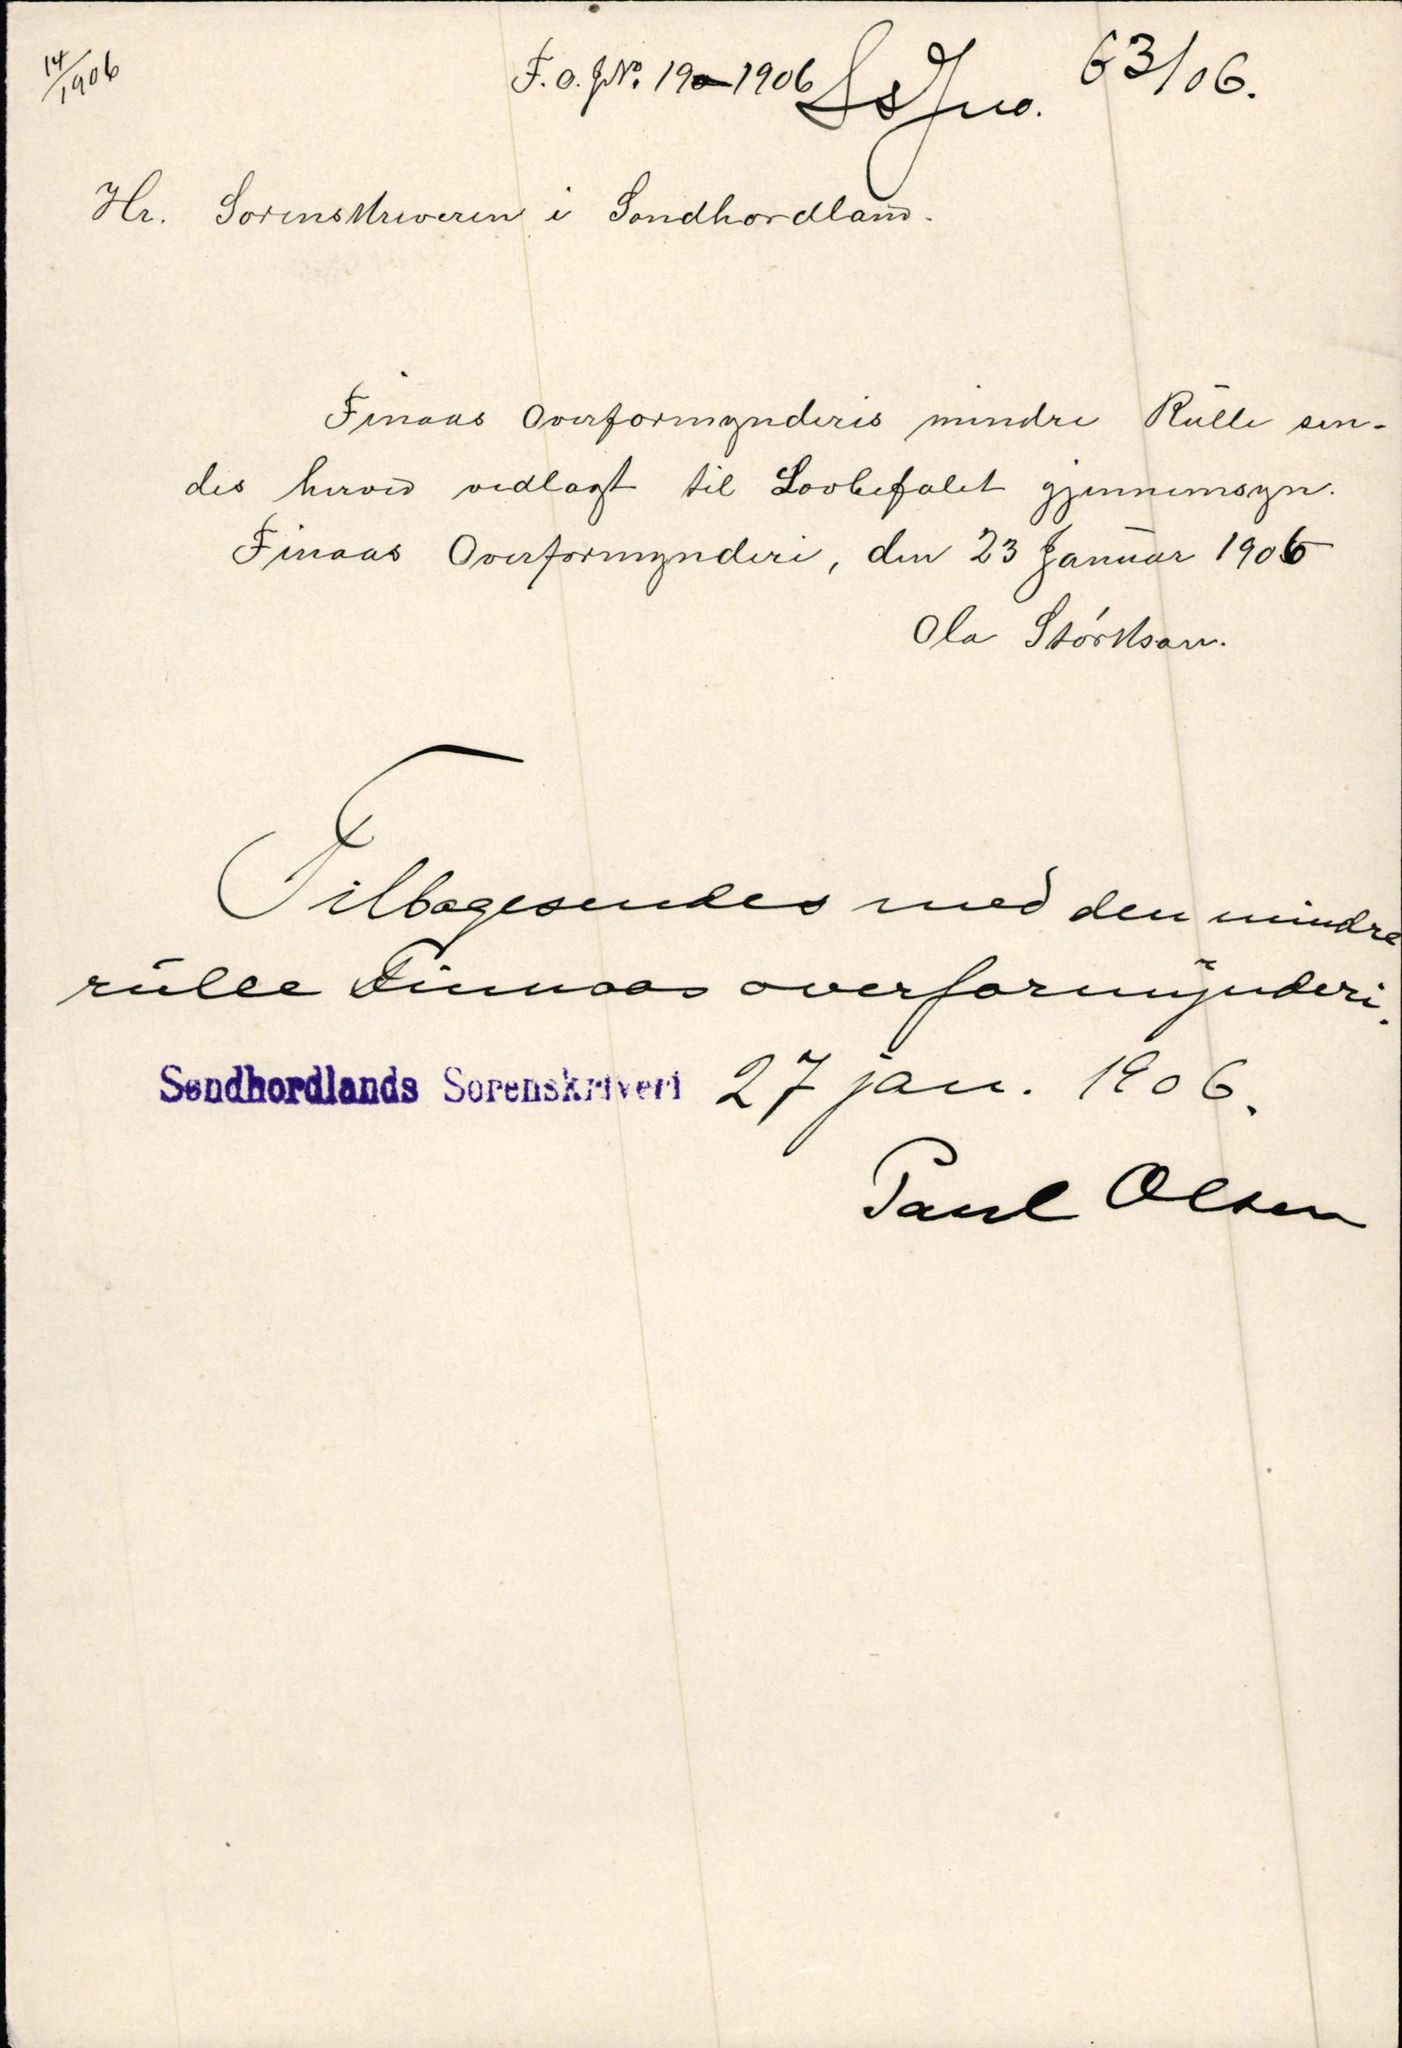 14/1906
F. O. J№. 19-1906 Ss Jno. 63/06.
Hr. Sorenskriveren i Sondhordland.
Finaas Overformynderis mindre Rŭlle sen-
des herved vedlagt til Lovbefalet gjennemsyn.
Finaas Overformynderi, den 23 Janŭar 1906
Ola Størksen.
Tilbagesendes med den mindre
rŭlle Finnaas overformynderi.
Søndhordlands Sorenskriveri 27 jan. 1906.
Paul Olsen